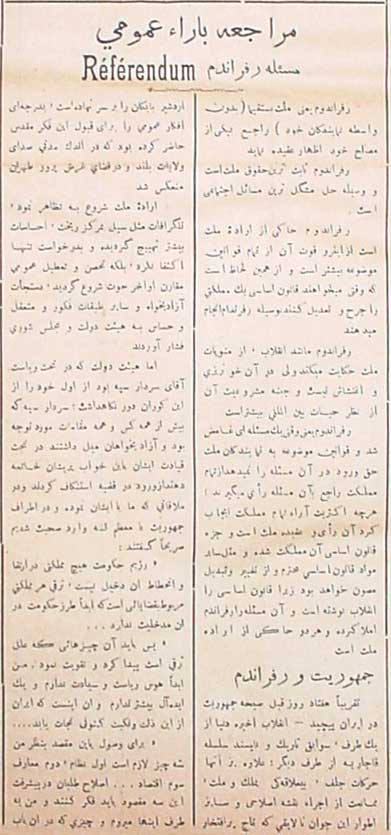 مراجعه باراء عمومي
مسئله رفراندم Référendum
رفراندوم یعنی ملت مستقیما (بدون
واسطه نمایندگان خود) راجع بیکی از
مصالح خود اظهار عقیده نماید
رفراندوم ثابت ترین حقوق ملت است
و وسیله حل مشکل ترین مسائل اجتماعی
است.
رفراندوم حاکی از ارادهٔ ملت
است از اینرو قوت آن از تمام قوانین
موضوعه بیشتر است و از همین لحاظ است
که وقتی میخواهند قانون اساسی یك مملکتی
را جرح و تعدیل کنند بوسیله رفراندام انجام
میدهند
رفراندوم مانند انقلاب، از منویات
ملت حکایت میکند ولی در آن خونریزی
و اغتشاش نیست و جنبه مشروعیت آن
از نظر حیات بین المللی بیشتر است
رفراندوم یعنی وقتی یك مسئله ای غامض
شد و قوانین موضوعه به نمایندگان ملت
حق ورود در آن مسئله را نمیدهد از تمام
مملکت راجع بآن مسئله رأی میگیرند؛
هرچه اکثریت آراء تمام مملکت ایجاب
کرد آن رأی و عقیده ملت است و جزء
قانون اساسی آن مملکت شده و مثل سایر
مواد قانون اساسی محترم و از تغییر و تبدیل
مصون خواهد بود زیرا قانون اساسی را
انقلاب نوشته است و آن مسئله را رفراندم
املا کرده و هر دو حاکی از اراده
ملت است
جمهوریت و رفراندم
تقریباً هفتاد روز قبل صیحه جمهوریت
در ایران پیچید – انقلاب اخیره دنیا از
یك طرف، سوابق تاریك و ناپسند سلسله
قاجاریه از طرف دیگر؛ علاوه بر آنها
حرکات جلف، بیعلاقگی بملك و ملت،
ممانعت از اجراء نقشه اصلاحی و سایر
اطوار این جوان نالایقی که تاج پرافتخار
اردشیر بابکان را بر سر نهاده است، بدرجه‌ای
افکار عمومی را برای قبول این فکر مقدس
حاضر کرده بود که در اندك مدتی صدای
ولایات بلند و در فضای غرش پرور طهران
منعکس شد
ارادهٔ ملت شروع به تظاهر نمود،
تلگرافات مثل سیل بمرکز ریخت، احساسات
بیشتر تهییج گردیده و بدرخواست تنها
اکتفا نکرد، بلکه تحصن و تعطیل عمومی
مقارن اواخر حوت شروع گردید، دستجات
آزادیخواه و سایر طبقات فکور و متعقل
و حساس به هیئت دولت و مجلس شورای
فشار آوردند
اما هیئت دولت که در تحت ریاست
آقای سردار سپه بود از اول خود را از
این کوران دور نگاهداشت؛ سردار سپه که
بیش از همه کس و همه مقامات مورد توجه
بود و آزادیخواهان میل داشتند در تحت
قیادت ایشان باین خواب پریشان خاتمه
دهند از ورود در قضیه استنکاف کردند و در
ملاقاتی که ما با ایشان نموده و در اطراف
جمهوریت با معظم له وارد صحبت شدیم
صریحاً گفتند:
« رژیم حکومت هیچ مملکتی در ارتقا
و انحطاط آن دخیل نیست، ترقی هر مملکتی
مربوط بقضایائی است که ابداً طرز حکومت در
آن مدخلیت ندارد...
« پس باید آن چیزهائی که علل
ترقی است پیدا کرد و تقویت نمود، من
ابداً هوس ریاست و سیادت ندارم و یك
ایده‌آل بیشتر ندارم و آن اینست که ایران
از این ذلت و فلاکت کنونی نجات یابد....
« برای وصول باین مقصد بنظر من
سه چیز لازم است اول نظام، دوم معارف
سوم اقتصاد... اصلاح طلبان در پیشرفت
این سه مقصود باید فکر کنند و من به
طرف اینها میروم و چیزی که در آن باب